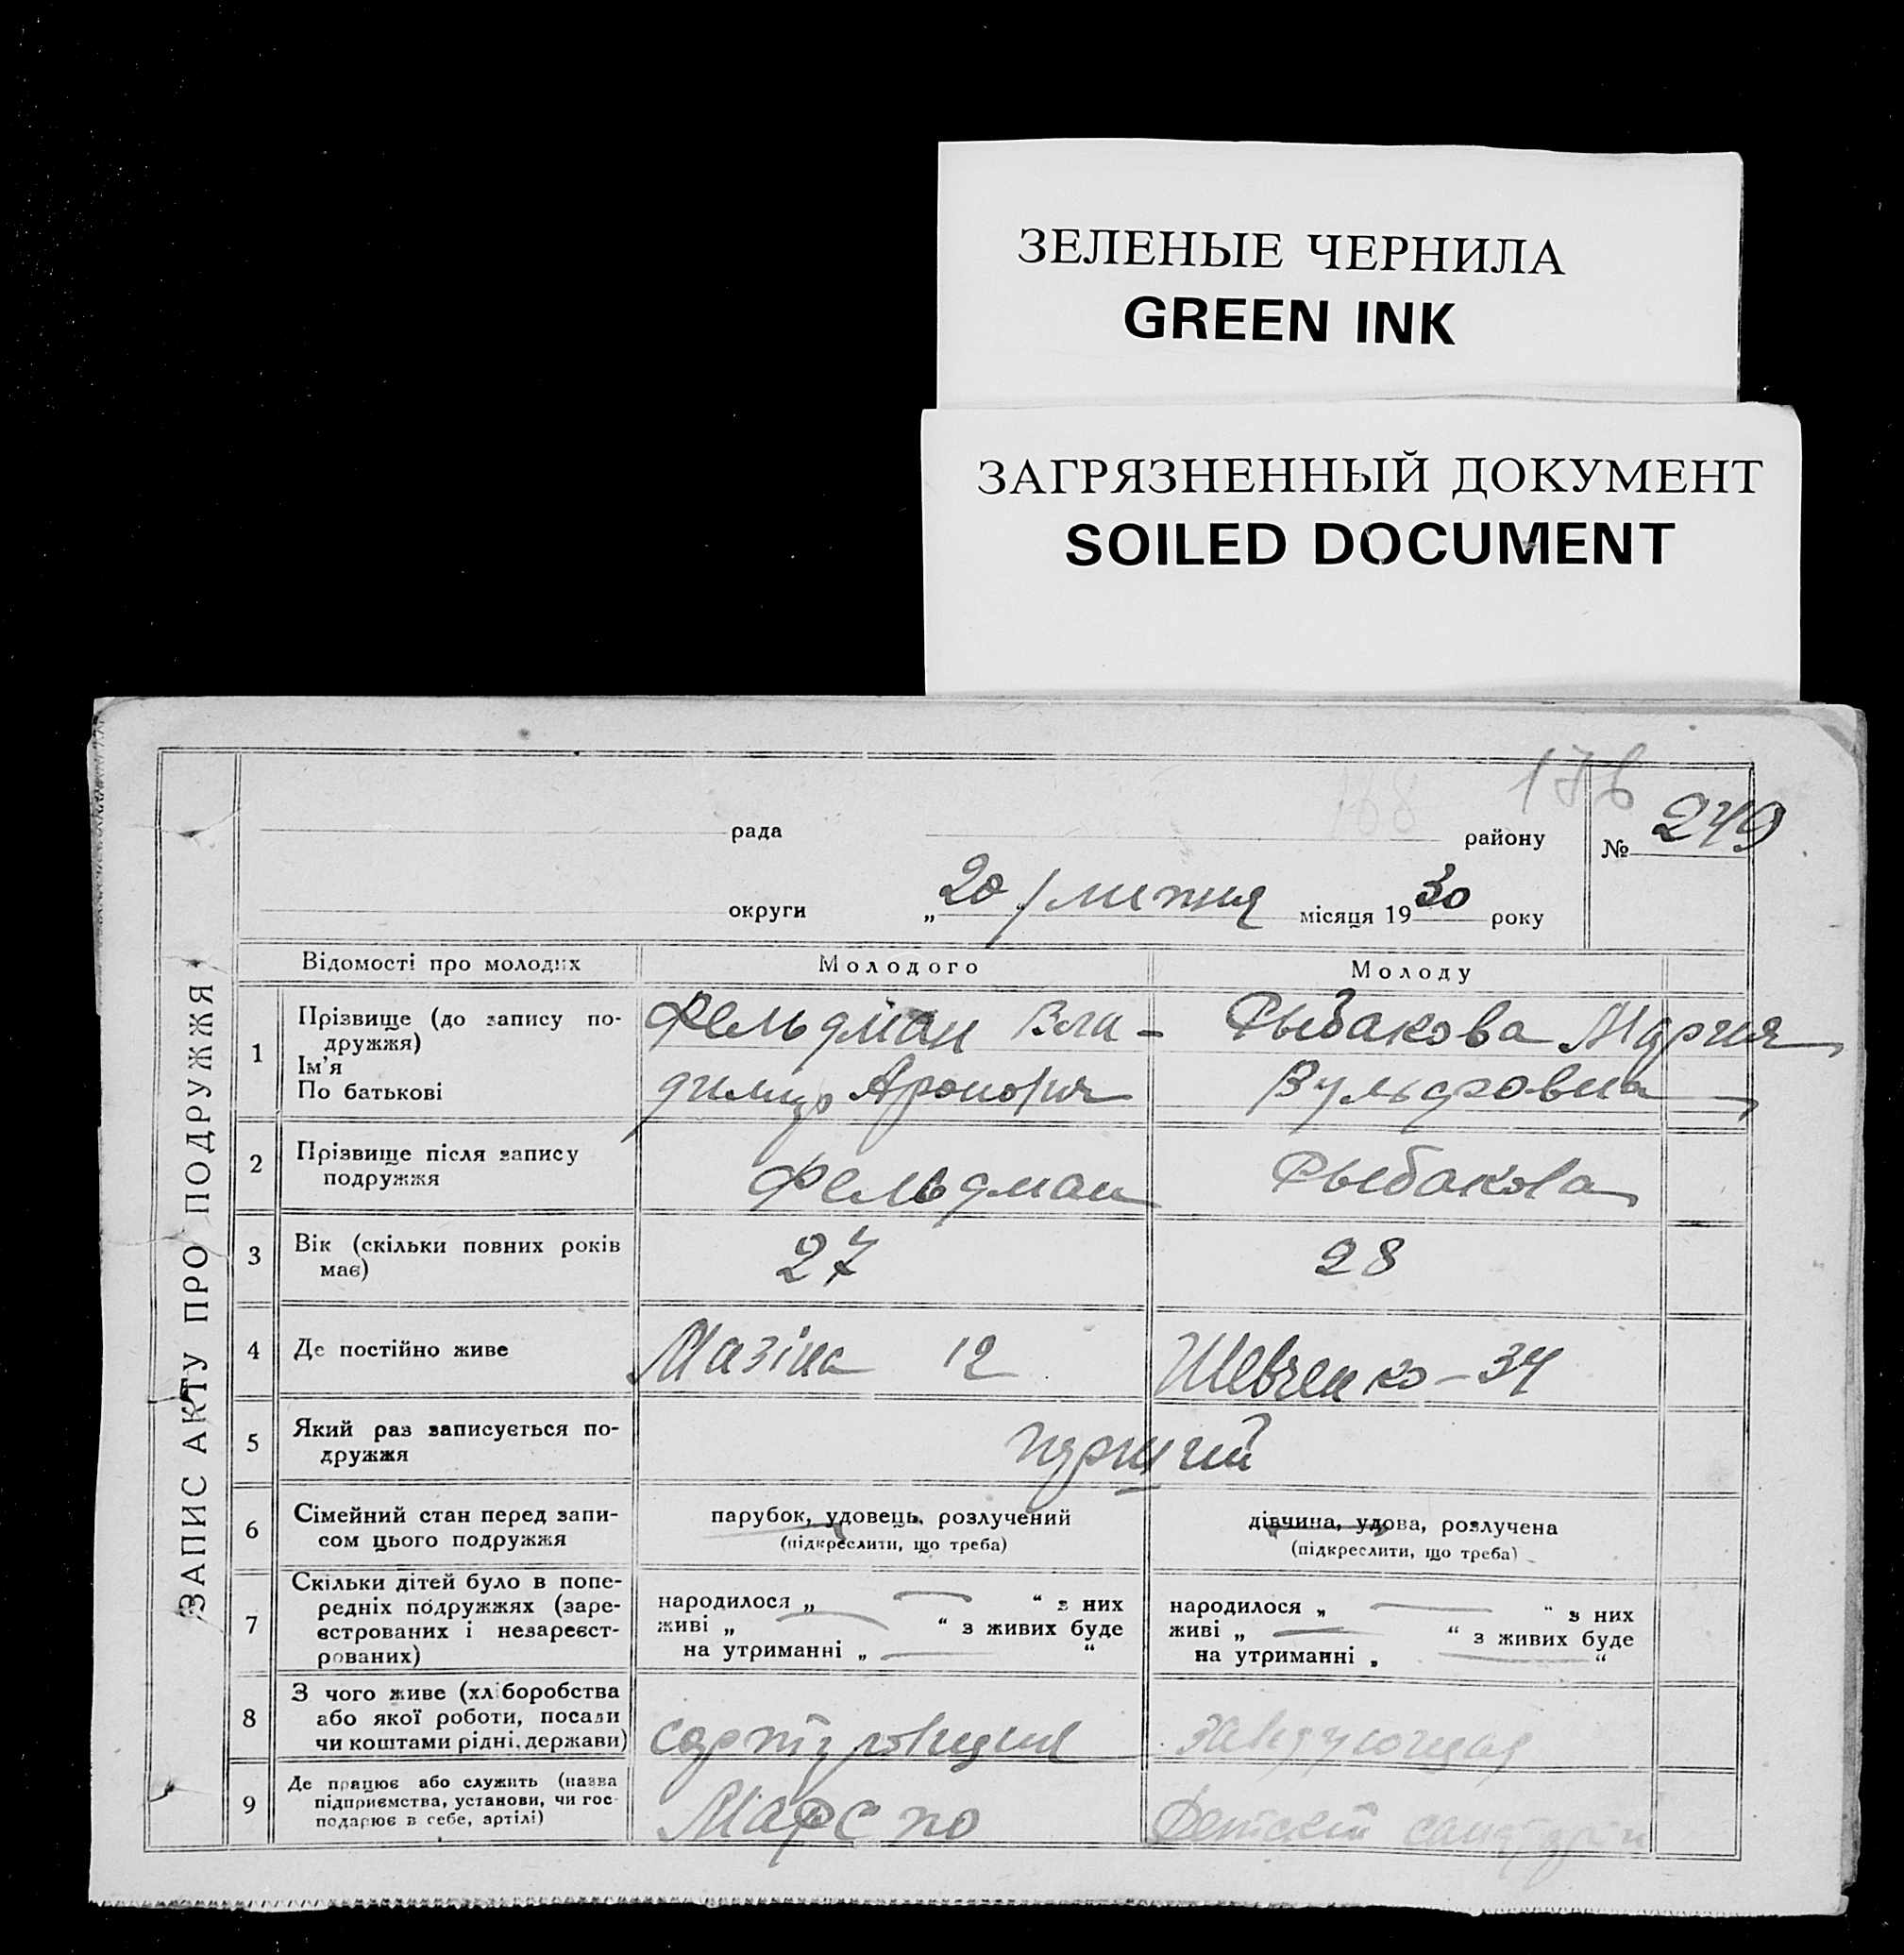 ЗЕЛЕНЫЕ ЧЕРНИЛА
GREEN INK
ЗАГРЯЗНЕННЫЙ ДОКУМЕНТ
SOILED DOCUMENT
168 176
рада району № 249
округи „20 / липня місяця 1930 року
ЗАПИС АКТУ ПРО ПОДРУЖЖЯ
Відомості про молодих Молодого Молоду
1 Прізвище (до запису по-
дружжя)
Ім’я
По батькові
Фельдман Вла-
димир Аронович
Рыбакова Мария
Вульфовна
2 Прізвище після запису
подружжя
Фельдман
Рыбакова
3 Вік (скільки повних років
має)
27
28
4 Де постійно живе
Мазіна 12
Шевченко - 34
5 Який раз записується по-
дружжя
перший
6 Сімейний стан перед запи-
сом цього подружжя
парубок, удовець, розлучений
(підкреслити, що треба)
дівчина, удова, розлучена
(підкреслити, що треба)
7 Скільки дітей було в попе-
редніх подружжях (заре-
єстрованих і незареєст-
рованих)
народилося „ “ з них
живі „ “ з живих буде
на утриманні „ “
народилося „ “ з них
живі „ “ з живих буде
на утриманні „ “
8 З чого живе (хліборобства
або якої роботи, посади
чи коштами рідні, держави)
заведующая
9 Де працює або служить (назва
підприємства, установи, чи гос-
подарює в себе, артілі)
Детский санаторий